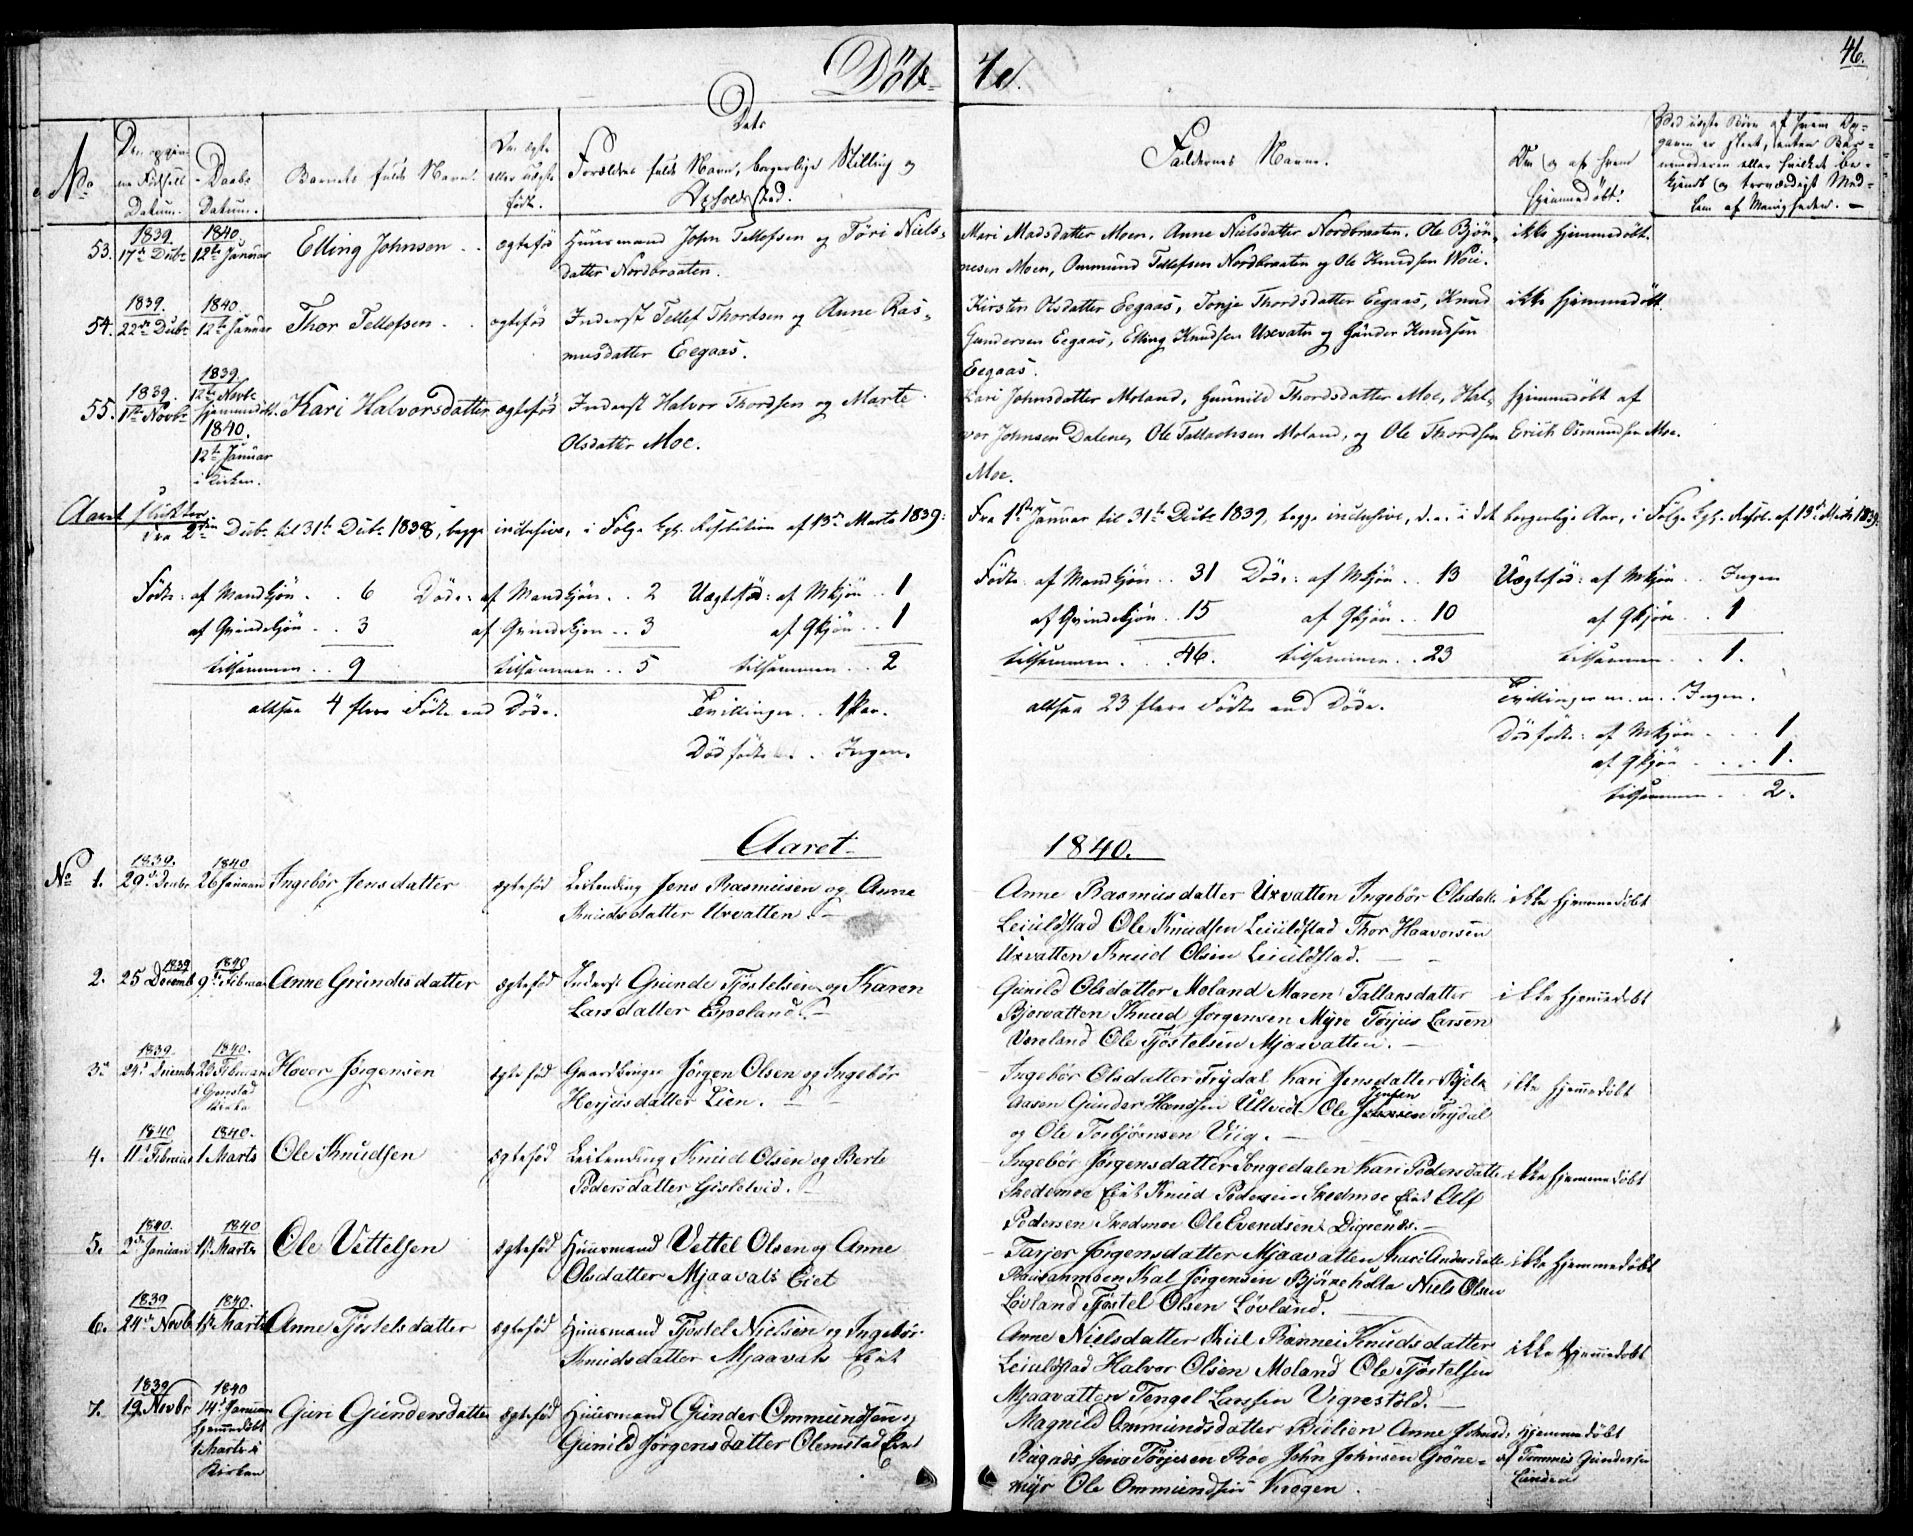 Döb-
te.
46.
No
Datum.
Daabs Datum.
Barnets fulde Navn.
Om ægte eller uægte født.
Dets
Forældres fulde Navn, borgerlige Stilling og
Opholdssted.
Faddernes Navne.
Om og af hvem
hjemmedöbt.
53.
1839.
17de Dbr
1840
12te Januar
Elling Johnsen
ægtefød
Huusmand John Tellefsen og Töri Niels-
datter Nordbraaten.
Mari Madsdatter Moen, Anne Nielsdatter Nordbraaten, Ole Björ-
nesen Moen, Ommund Tellefsen Nordbraaten og Ole Knudsen Woie.
ikke hjemmedöbt.
54.
1839.
22de Dbr
1840.
12te Januar
Thor Tellefsen
ægtefød
Inderst Tellef Thordsen og Anne Ras-
musdatter Eegaas.
Kirsten Olsdatter Eegaas, Tonje Thordsdatter Eegaas, Knud
Gundersen Eegaas, Elling Knudsen Uxevatn og Gunder Knudsen
Eegaas.
ikke hjemmedöbt.
55.
1839.
1ste Novbr
1839.
12te Novbr
hjemmedöbt.
1840.
12te Januar
i Kirken.
Kari Halvorsdatter
ægtefød
Inderst Halvor Thordsen og Marte
Olsdatter Moe.
Kari Johnsdatter Moland, Gunnild Thordsdatter Moe, Hal-
vor Johnsen Dalene, Ole Tallachsen Moland, og Ole Thordsen
Moe.
hjemmedöbt af
Erik Osmundsen Moe.
Aaret slutter
fra 2den Dbr til 31te Dbr 1838, begge inclusive, i Følge Kgl. Resolution af 13de Marts 1839:
Fra 1ste Januar til 31te Dbr 1839, begge inclusive, d. e. i det borgerlige Aar, i Følge Kgl. Resol. af 13de Marts 1839.
Födte: af Mandkjön . . 6 Döde: af Mandkjön . . 2 Uægtefød: af Mkjön . . 1
af Qvindekjön . . 3 af Qvindekjön . . 3 af Qkjön . . 1
tilsammen . . 9 tilsammen . . 5 tilsammen . . 2
altsaa 4 flere Födte end Döde.
Tvillinger . . 1 Par.
Dödfödte . . Ingen.
Födte: af Mandkjön . . 31 Döde: af Mkjön . . 13 Uægtefød: af Mkjön . . Ingen
af Qvindekjön . . 15 af Qkjön . . 10 af Qkjön . . 1
tilsammen . . 46. tilsammen . . 23 tilsammen . . 1.
altsaa 23 flere Födte end Döde.
Tvillinger m. m. Ingen.
Dödfödte: af Mkjön . . 1
af Qkjön . . 1.
tilsammen . . 2.
Aaret
1840.
No 1.
1839.
29de Decbr
1840
26 Januar
Ingebör Jensdatter
ægtefød
Leilending Jens Rasmusen og Anne
Knudsdatter Uxvatten.
Anne Rasmusdatter Uxvatten Ingebör Olsdatte
Leiuldstad Ole Knudsen Leiuldstad Thor Haavorsen
Uxvatten Knud Olsen Leiuldstad.
ikke hjemmedöbt
2.
1839
25 Decemb
1840
9de Februar
Anne Grundesdatter
ægtefød
Inderst Grunde Tjöstelsen og Karen
Larsdatter Espeland
Gunild Olsdatter Moland Maren Tallaksdatter
Bjorvatten Knud Jørgensen Myre Torjus Larsen
Voreland Ole Tjöstelsen Mjaavatten.
ikke hjemmedöbt
3.
1839
24de December
1840.
23 Februar
i Gjerestad
Kirke
Hover Jörgensen
ægtefød
Gaardbruger Jörgen Olsen og Ingebör
Herjusdatter Lien.
Ingebör Olsdatter Trydal Kari Jensdatter Bjelk
aasen Gunder Hansen Ulltveit Ole Jensen Trydal
og Ole Torbjörnsen Viig.
ikke hjemmedöbt
4.
1840
11te Februar
1840.
1 Marts
Ole Knudsen
ægtefød
Leilending Knud Olsen og Berte
Pedersdatter Gisletvid.
Ingebör Jörgensdatter Songedalen Kari Pedersdatte
Skedsmoe Eiet Knud Pedersen Skedmoe Eiet Alf
Pedersen Skedmoe Ole Evendsen Digrenes.
ikke hjemmedöbt
5.
1840.
2de Januar
1840
1ste Marts
Ole Vettelsen
ægtefød
Huusmand Vettel Olsen og Anne
Olsdatter Mjaavats Eiet
Tarjer Jörgensdatter Mjaavatten Kari Andersdatte
Kal Jörgensen Björneholte Niels Olsen
Lövland Tjöstel Olsen Lövland.
ikke hjemmedöbt
6.
1839
24de Novbr
1840.
1ste Marts
Anne Tjöstelsdatter
ægtefød
Huusmand Tjöstel Nielsen og Ingebör
Knudsdatter Mjaavats Eiet
Anne Nielsdatter Kiil Rannei Knudsdatter
Leiuldstad Halvor Olsen Moland Ole Tjöstelsen
Mjaavatten Tengel Larssen Vigrestöld.
ikke hjemmedöbt
7.
1839
19 Novbr
1840
14de Januar
hjemmedöbt
1 Marts i
Kirken
Guri Gundersdatter
ægtefød
Huusmand Gunder Ommundsen og
Gunild Jörgensdatter Olemstad Eiet
Magnild Ommundsdatter Anne Johnsd.
Jens Törjesen Roe John Johnsen Gröne-
myr Ole Ommundsen Krogen.
hjemmedöbt
af Tommes Gundersen
Lunden